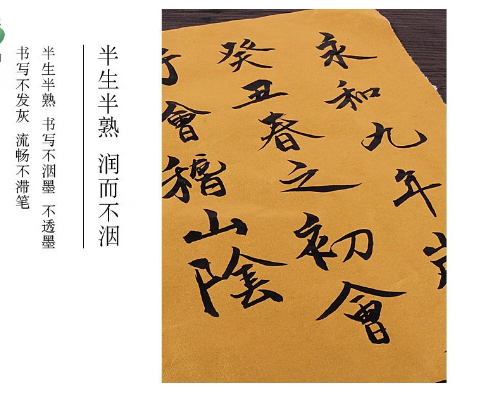 永和九年
癸丑春之初會
于會稽山陰
半生半熟 润而不洇
半生半熟 书写不洇墨 不透墨
书写不发灰 流畅不滞笔